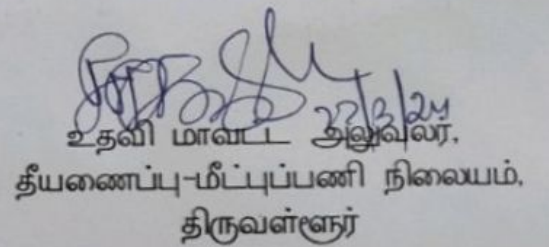 22/3/24
உதவி மாவட்ட அலுவலர்,
தீயணைப்பு-மீட்புப்பணி நிலையம்,
திருவள்ளூர்